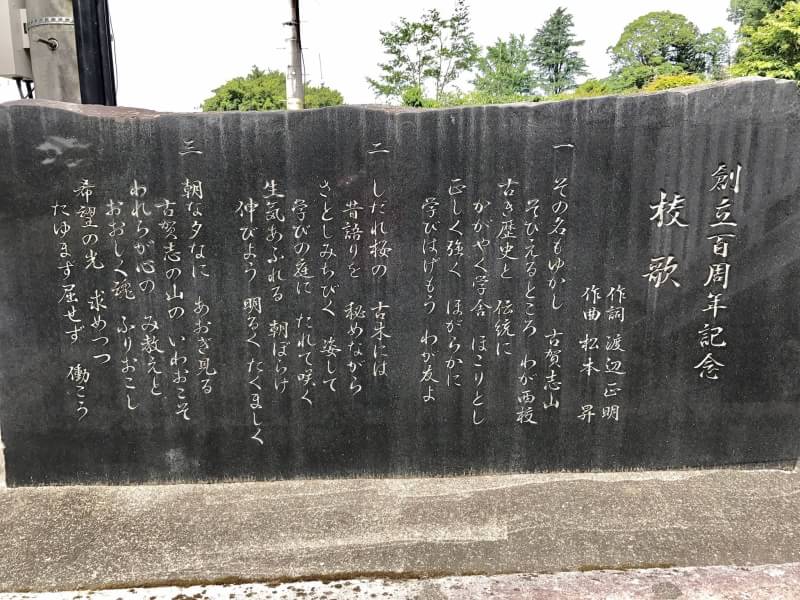 創立百周年記念
校歌
作詞 渡辺正明
作曲 松本 昇
一
その名もゆかし 古賀志山
そびえるところ わが西校
古き歴史と 伝統に
かがやく学舎 ほこりとし
正しく強く ほがらかに
学びはげもう わが友よ
二
しだれ桜の 古木には
昔語りを 秘めながら
さとしみちびく 姿して
学びの庭に たれて咲く
生気あふれる 朝ぼらけ
伸びよう 明るく たくましく
三
朝な夕なに あおぎ見る
古賀志の山の いわおこそ
われらが心の み教えと
おおしく魂 ふりおこし
希望の光 求めつつ
たゆまず屈せず 働こう